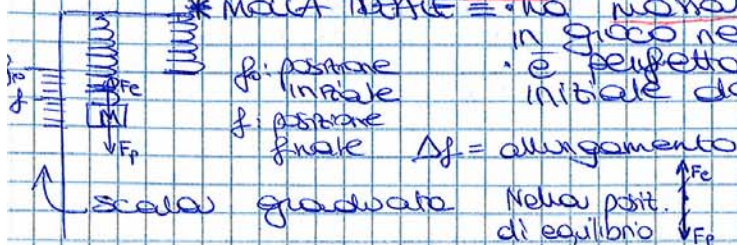 * MOLLA IDEALE = • ha massa
in gioco ne
• è perfetto
iniziale da
f₀: posizione
iniziale
f: posizione
finale
Δf = allungamento
f₀
f
Fe
M
Fp
scala graduata
Nella posit.
di equilibrio
Fe
Fp